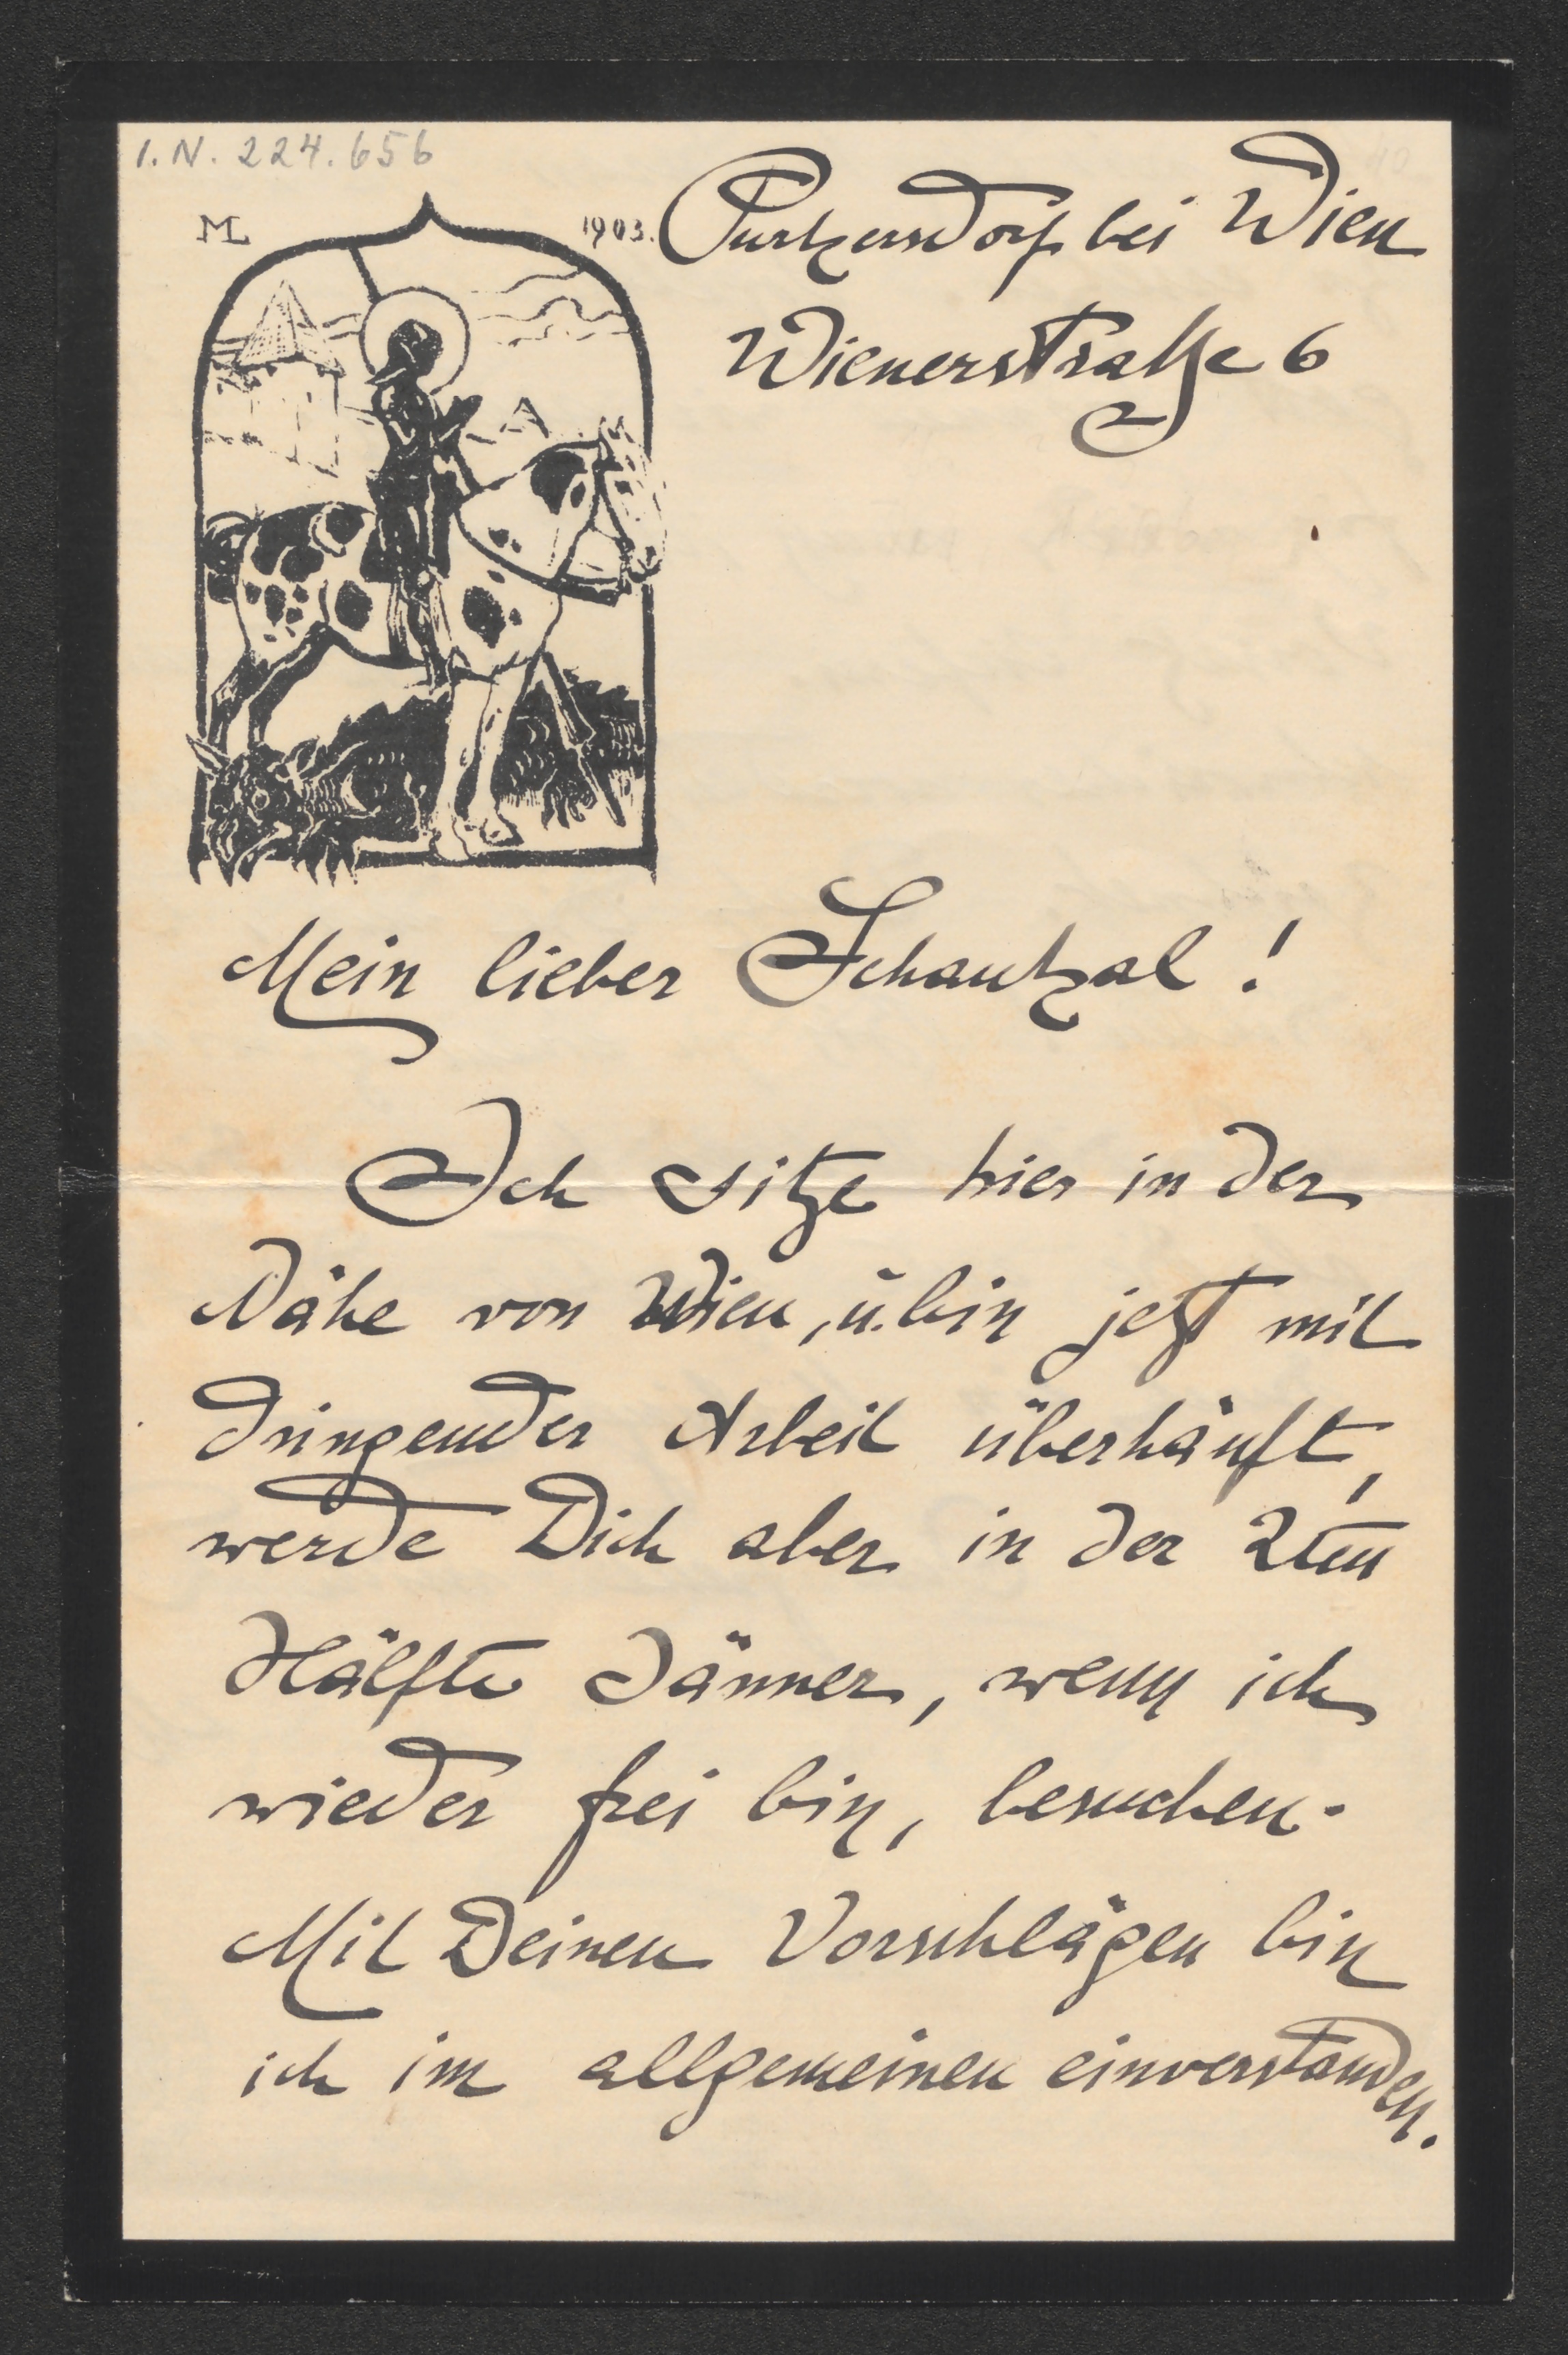 I.N. 224.656
ML 1903.
Purkersdorf bei Wien
Wienerstraße 6
Mein lieber Schaukal!
Ich sitze hier in der
Nähe von Wien, u. bin jetzt mit
dringender Arbeit überhäuft,
werde Dich aber in der 2ten
Hälfte Jänner, wenn ich
wieder frei bin, besuchen.
Mit Deinen Vorschlägen bin
ich im allgemeinen einverstanden.